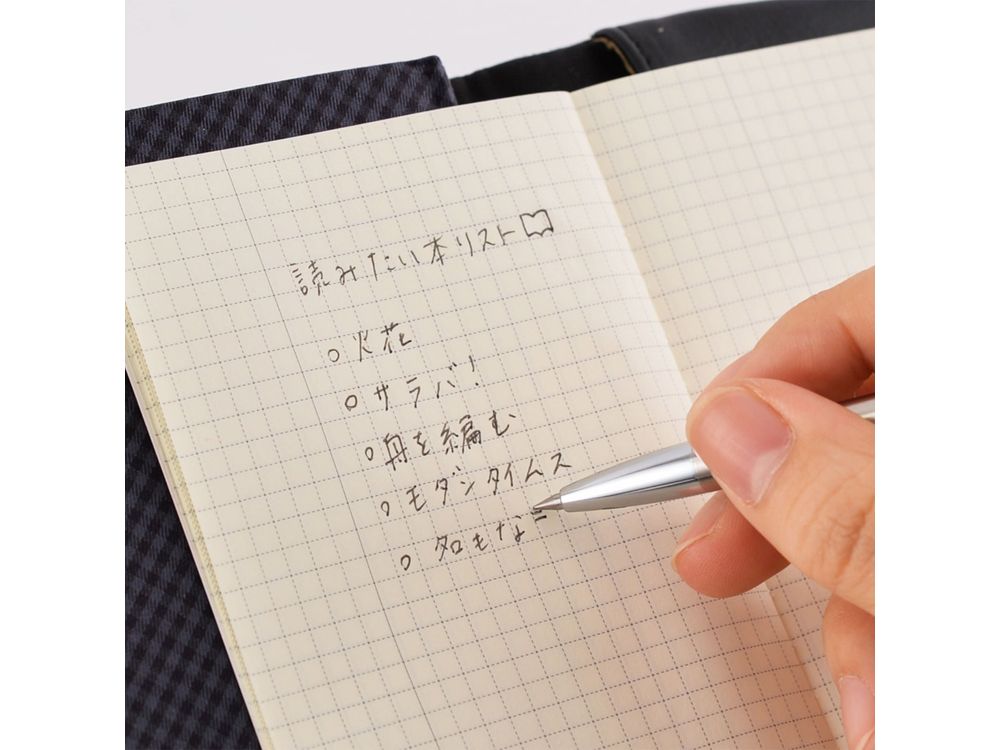 読みたい本リスト
○ 火花
○ サラバ！
○ 舟を編む
○ モダンタイムス
○ 名もな